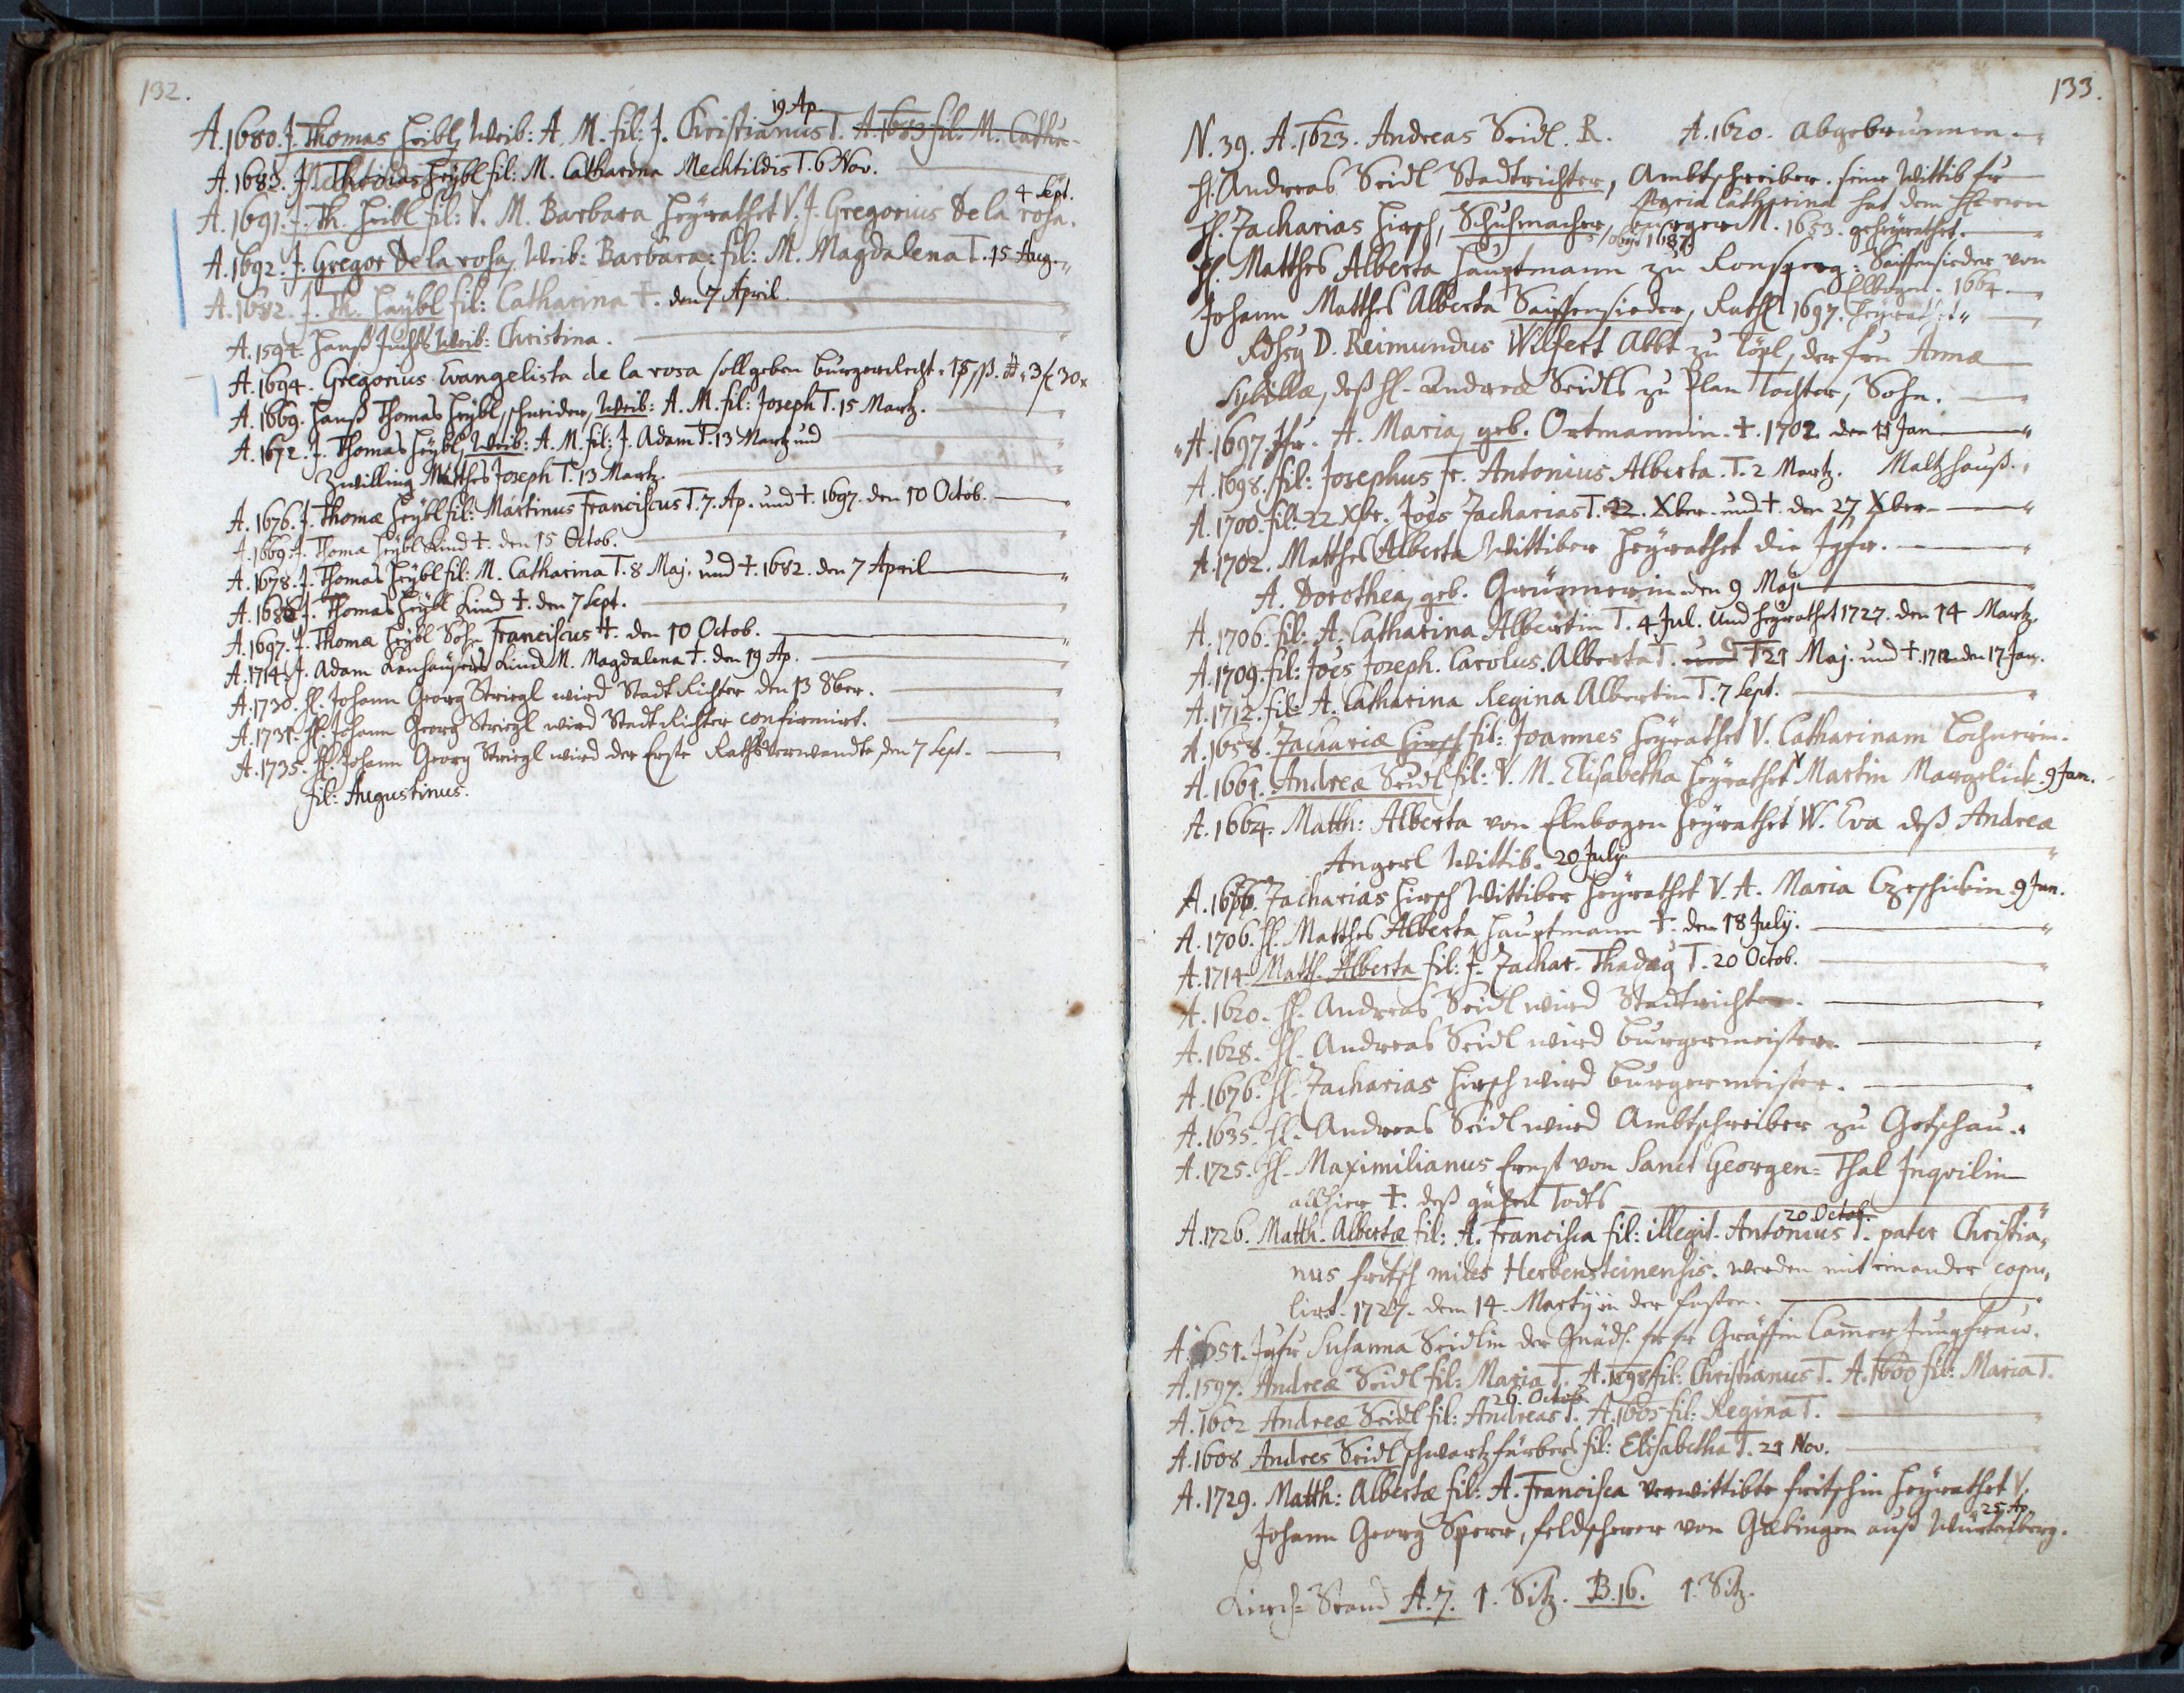 132.
19 Ap.
A. 1680. J. Thomas Heibl, Weib: A. M. fil: J. Christianus T. A. 1683 fil. M. Cathr-
A. 1683. J. Thomas Heybl fil: M. Catharina Mechtildis T. 6 Nov.
4 Sept.
A. 1691. J. Th. Heibl fil: V. M. Barbara heÿrathet V. J. Gregorius de la rosa.
A. 1692. J. Gregor de la rosa, Weib: Barbara: fil: M. Magdalena T. 15 Aug.
A. 1682. J. Th. Haÿbl fil: Catharina †. den 7 April
A. 1594. Hanß Weib: Christina.
A. 1694. Gregorius Evangelista de la rosa soll geben burgerrecht 3 f 30 x
A. 1669. Hanß Thomas Heÿbl, schneider, Weib: A. M. fil: Joseph T. 15 Martz.
A. 1672. J. Thomas Heÿbl, Weib: A. M. fil: J. Adam T. 13 Martz und
Zwilling Matthes Joseph T. 13 Martz.
A. 1676. J. Thomæ Heÿbl fil: Martinus Franciscus T. 7. Ap. und †. 1697. den 10 Octob.
A. 1669. J. Thoma Heÿbl Kind †. den 15 Octob.
A. 1678. J. Thomas Heÿbl fil: M. Catharina T. 8 Maj. und †. 1682. den 7 April
A. 1686 J. Thomas Heÿbl Kind †. den 7 Sept.
A. 1697. J. Thomæ Heÿbl Sohn Franciscus †. den 10 Octob.
A. 1714. J. Adam Kind M. Magdalena †. den 19 Ap.
A. 1730. H. Johann Georg Striegl wird Stadt Richter den 13 8ber.
A. 1731. H. Johann Georg Striegl wird Stadt Richter confirmirt.
A. 1735. H. Johann Georg Striegl wird der Erste Rathsverwandte, den 7 Sept.
fil: Augustinus.
133.
N. 39. A. 1623. Andreas Seidl. R. A. 1620. abgebrunnen.
H. Andreas Seidl Stadtrichter, Ambtschreiber. seine Wittib fr
Maria Catharina hat dem Herrn
H. Zacharias Hirsch, Schuhmacher, burger M. 1653. geheÿrathet.
1687
H. Matthes Alberta Hauptmann zu Ronsperg: Saiffensieder von
Elbogen. 1664.
Johann Matthes Alberta Saiffensieder, Rath 1697. heÿrathet
D. Reimundus Wilfert Abbt zu Töpl, der fru Annæ
Sybillæ, deß H. Andreæ Seidls zu Plan Tochter, Sohn.
A. 1697. Jfr. A. Maria, geb. Ortmannin. †. 1702. den 15 Jan
A. 1698. fil: Josephus Fr. Antonius Alberta. T. 2 Martz. Maltzhauß.
A. 1700. fil: 22 Xbr. Joes Zacharias T. 22. Xber. und †. den 27 Xber
A. 1702. Matthes Alberta Wittiber heÿrathet die Jgfr.
A. Dorothea, geb. Grünnerin den 9 Maj
A. 1706. fil: A. Catharina Albertin T. 4 Jul. und heÿrathet 1727. den 14 Martz.
A. 1709. fil: Joes Joseph. Carolus. Alberta T. und T 21 Maj. und †. 1712 den 17 Jan.
A. 1712. fil: A. Catharina Regina Albertin T. 7 Sept.
A. 1658. Zachariæ Hirsch fil: Joannes heÿrathet V. Catharinam Lochnerin.
A. 1661. Andreæ Seidl fil: V. M. Elisabetha heÿrathet V Martin Margelick. 9 Jan.
A. 1664. Matth: Alberta von Elnbogen heÿrathet W. Eva deß Andrea
Angerl Wittib. 20 July
A. 1676. Zacharias Hirsch Wittiber heÿrathet V. A. Maria Czeschickin 9 Jan.
A. 1706. H. Matthes Alberta Hauptmann †. den 18 Julÿ.
A. 1714. Matth. Alberta fil: J. Zachar. Thadæg T. 20 Octob.
A. 1620. H. Andreas Seidl wird Stadtrichter.
A. 1628. H. Andreas Seidl wird burgermeister.
A. 1676. H. Zacharias Hirsch wird burgermeister.
A. 1635. H. Andreas Seidl wird Ambtschreiber zu Gotschau.
A. 1725. H. Maximilianus Ernst von Sanct Georgen-Thal Inqvilin
allhier †. deß gähen Todts
20 Octob.
A. 1726. Matth. Albertæ fil: A. Francisca fil: illegit. Antonius T. pater Christia-
nus fritsch miles Herbensteinensis. werden mit einander copu-
lirt. 1727. dem 14. Martÿ in der fasten.
A. 1651. Jufr Susanna Seidlin der Gnäd. fr fr Gräffin Camer Jungfraw.
A. 1597. Andreæ Seidl fil: Maria T. A. 1598 fil: Christianus T. A. 1600 fil: Maria T.
26. Octob.
A. 1602 Andreæ Seidl fil: Andreas T. A. 1605 fil: Regina T.
A. 1608 Andres Seidl schwartzfärbers fil: Elisabetha T. 21 Nov.
A. 1729. Matth: Albertæ fil: A. Francisca verwittibte fritschin heÿrathet V.
25 Ap.
Johann Georg Sperr, feldscherer von Gæbingen auß Würtenberg.
Kirch-Stand A. 7. 1. Sitz. B. 16. 1. Sitz.